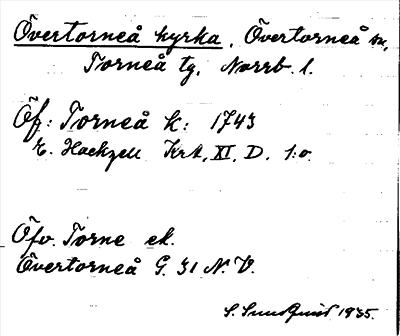 Övertorneå kyrka, Övertorneå sn,
Torneå tg, Norrb. l.
Öf: Torneå k: 1743
E. Hackzell Krt, XI, D. 1:o
Öfv. Torne ek.
Övertorneå G. 31 N.V.
S. Sundquist 1935.